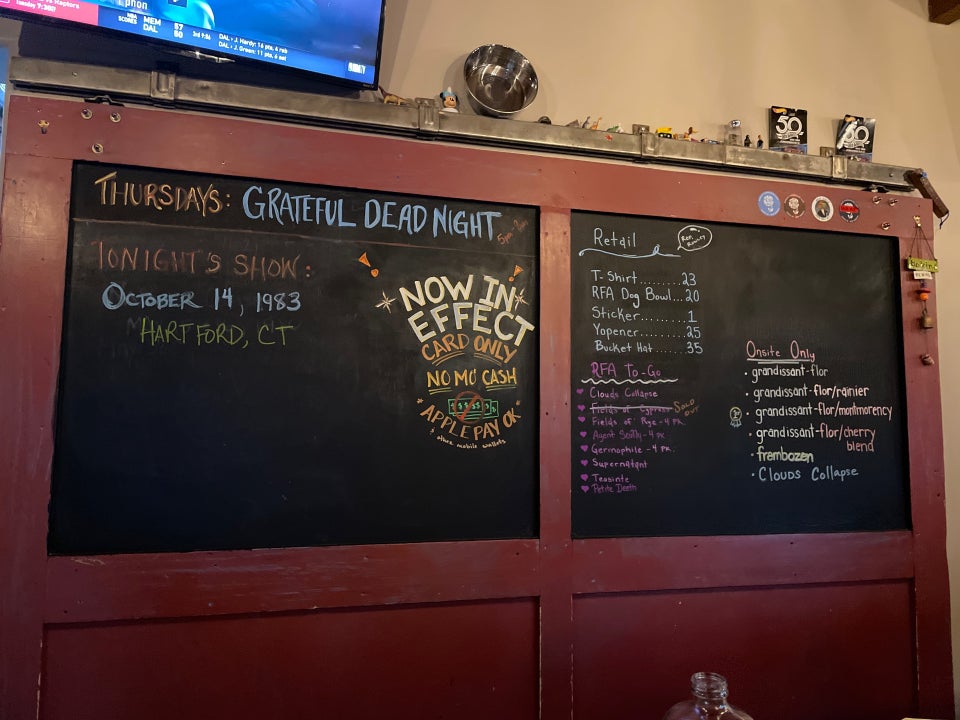 vs Raptors
Tuesday 7:30P
NBA
SCORES
MEM 57
DAL 50
3rd 9:06
DAL • J. Hardy: 16 pts, 4 reb
DAL • J. Green: 11 pts, 6 ast
50
50
THURSDAYS: GRATEFUL DEAD NIGHT
TONIGHT'S SHOW:
OCTOBER 14, 1983
HARTFORD, CT
NOW IN
EFFECT
CARD ONLY
NO MO' CASH
$ $ $ $ $
APPLE PAY OK
& other mobile wallets
Retail
T-Shirt.........23
RFA Dog Bowl...20
Sticker.........1
Yopener........25
Bucket Hat......35
RFA To-Go
Clouds Collapse
Fields of Cypress SOLD OUT
Fields of Rye - 4 PK
Agent Scully - 4 PK
Germophile - 4 PK.
Supernatant
Teasinte
Petite Death
Onsite Only
• grandissant-flor
• grandissant-flor/rainier
• grandissant-flor/montmorency
• grandissant-flor/cherry
blend
• frambozen
• Clouds Collapse